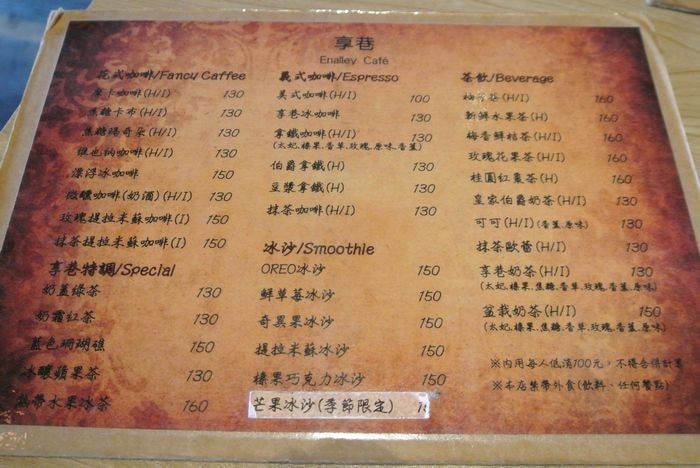 享巷
Enalley Café
花式咖啡/Fancy Caffee
摩卡咖啡(H/I) 130
焦糖卡布(H/I) 130
焦糖瑪奇朵(H/I) 130
維也納咖啡(H/I) 130
漂浮冰咖啡 150
微醺咖啡(奶酒)(H/I) 130
玫瑰提拉米蘇咖啡(I) 150
抹茶提拉米蘇咖啡(I) 150
享巷特調/Special
奶蓋綠茶 130
奶霜紅茶 130
藍色珊瑚礁 150
冰釀蘋果茶 130
熱帶水果冰茶 160
義式咖啡/Espresso
美式咖啡(H/I) 100
享巷冰咖啡 130
拿鐵咖啡(H/I) 130
(太妃.榛果.香草.玫瑰.原味.香蓋)
伯爵拿鐵(H) 130
豆漿拿鐵(H) 130
抹茶咖啡(H/I) 130
冰沙/Smoothie
OREO冰沙 150
鮮草莓冰沙 150
奇異果冰沙 150
提拉米蘇冰沙 150
榛果巧克力冰沙 150
芒果冰沙(季節限定)
茶飲/Beverage
柚子茶(H/I) 160
新鮮水果茶(H) 160
梅香鮮桔茶(H/I) 160
玫瑰花果茶(H/I) 160
桂圓紅棗茶(H) 160
皇家伯爵奶茶(H/I) 130
可可(H/I)(香蓋.原味) 130
抹茶歐蕾(H/I) 130
享巷奶茶(H/I) 130
(太妃.榛果.焦糖.香草.玫瑰.香蓋.原味)
盆栽奶茶(H/I) 150
(太妃.榛果.焦糖.香草.玫瑰.香蓋.原味)
※內用每人低消100元,不得合併計算
※本店禁帶外食(飲料、任何餐點)